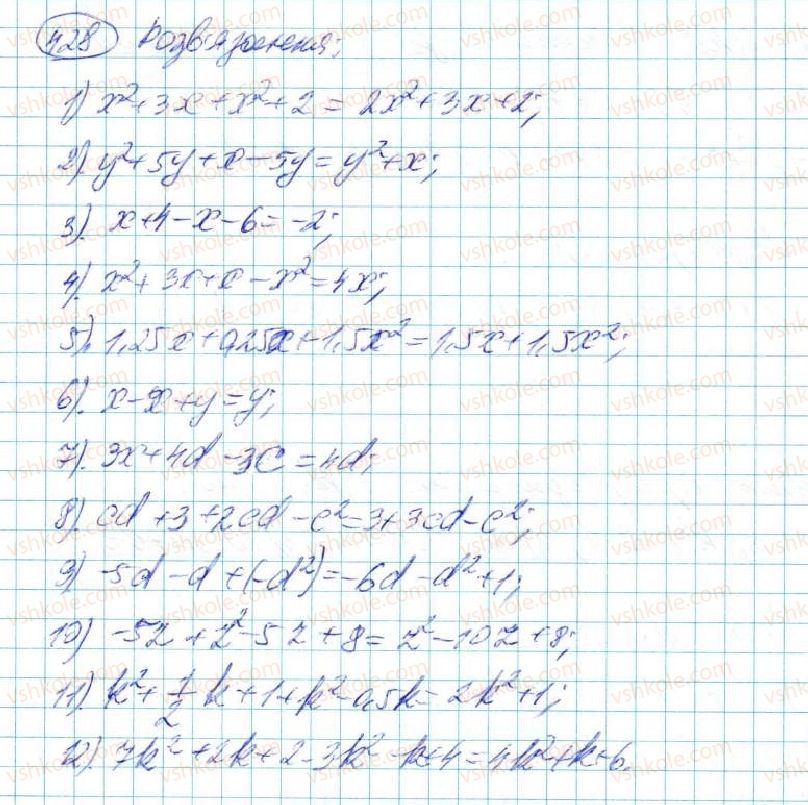 428 Розв'язання:
1) x²+3x+x²+2 = 2x²+3x+2;
2). y²+5y+x-5y=y²+x;
3). x+4-x-6=-2;
4). x²+3x+x-x²=4x;
5). 1,25x+0,25x+1,5x²=1,5x+1,5x²;
6). x-x+y=y;
7). 3x+4d-3c=4d;
8). cd+3+2cd-c²=3+3cd-c²;
9) -5d-d+(-d²)=-6d-d²+1;
10) -5z+z²-5z+8=z²-10z+8;
11) k²+1/2k+1+k²-0,5k=2k²+1;
12). 7k²+2k+2-3k²-k+4=4k²+k+6.